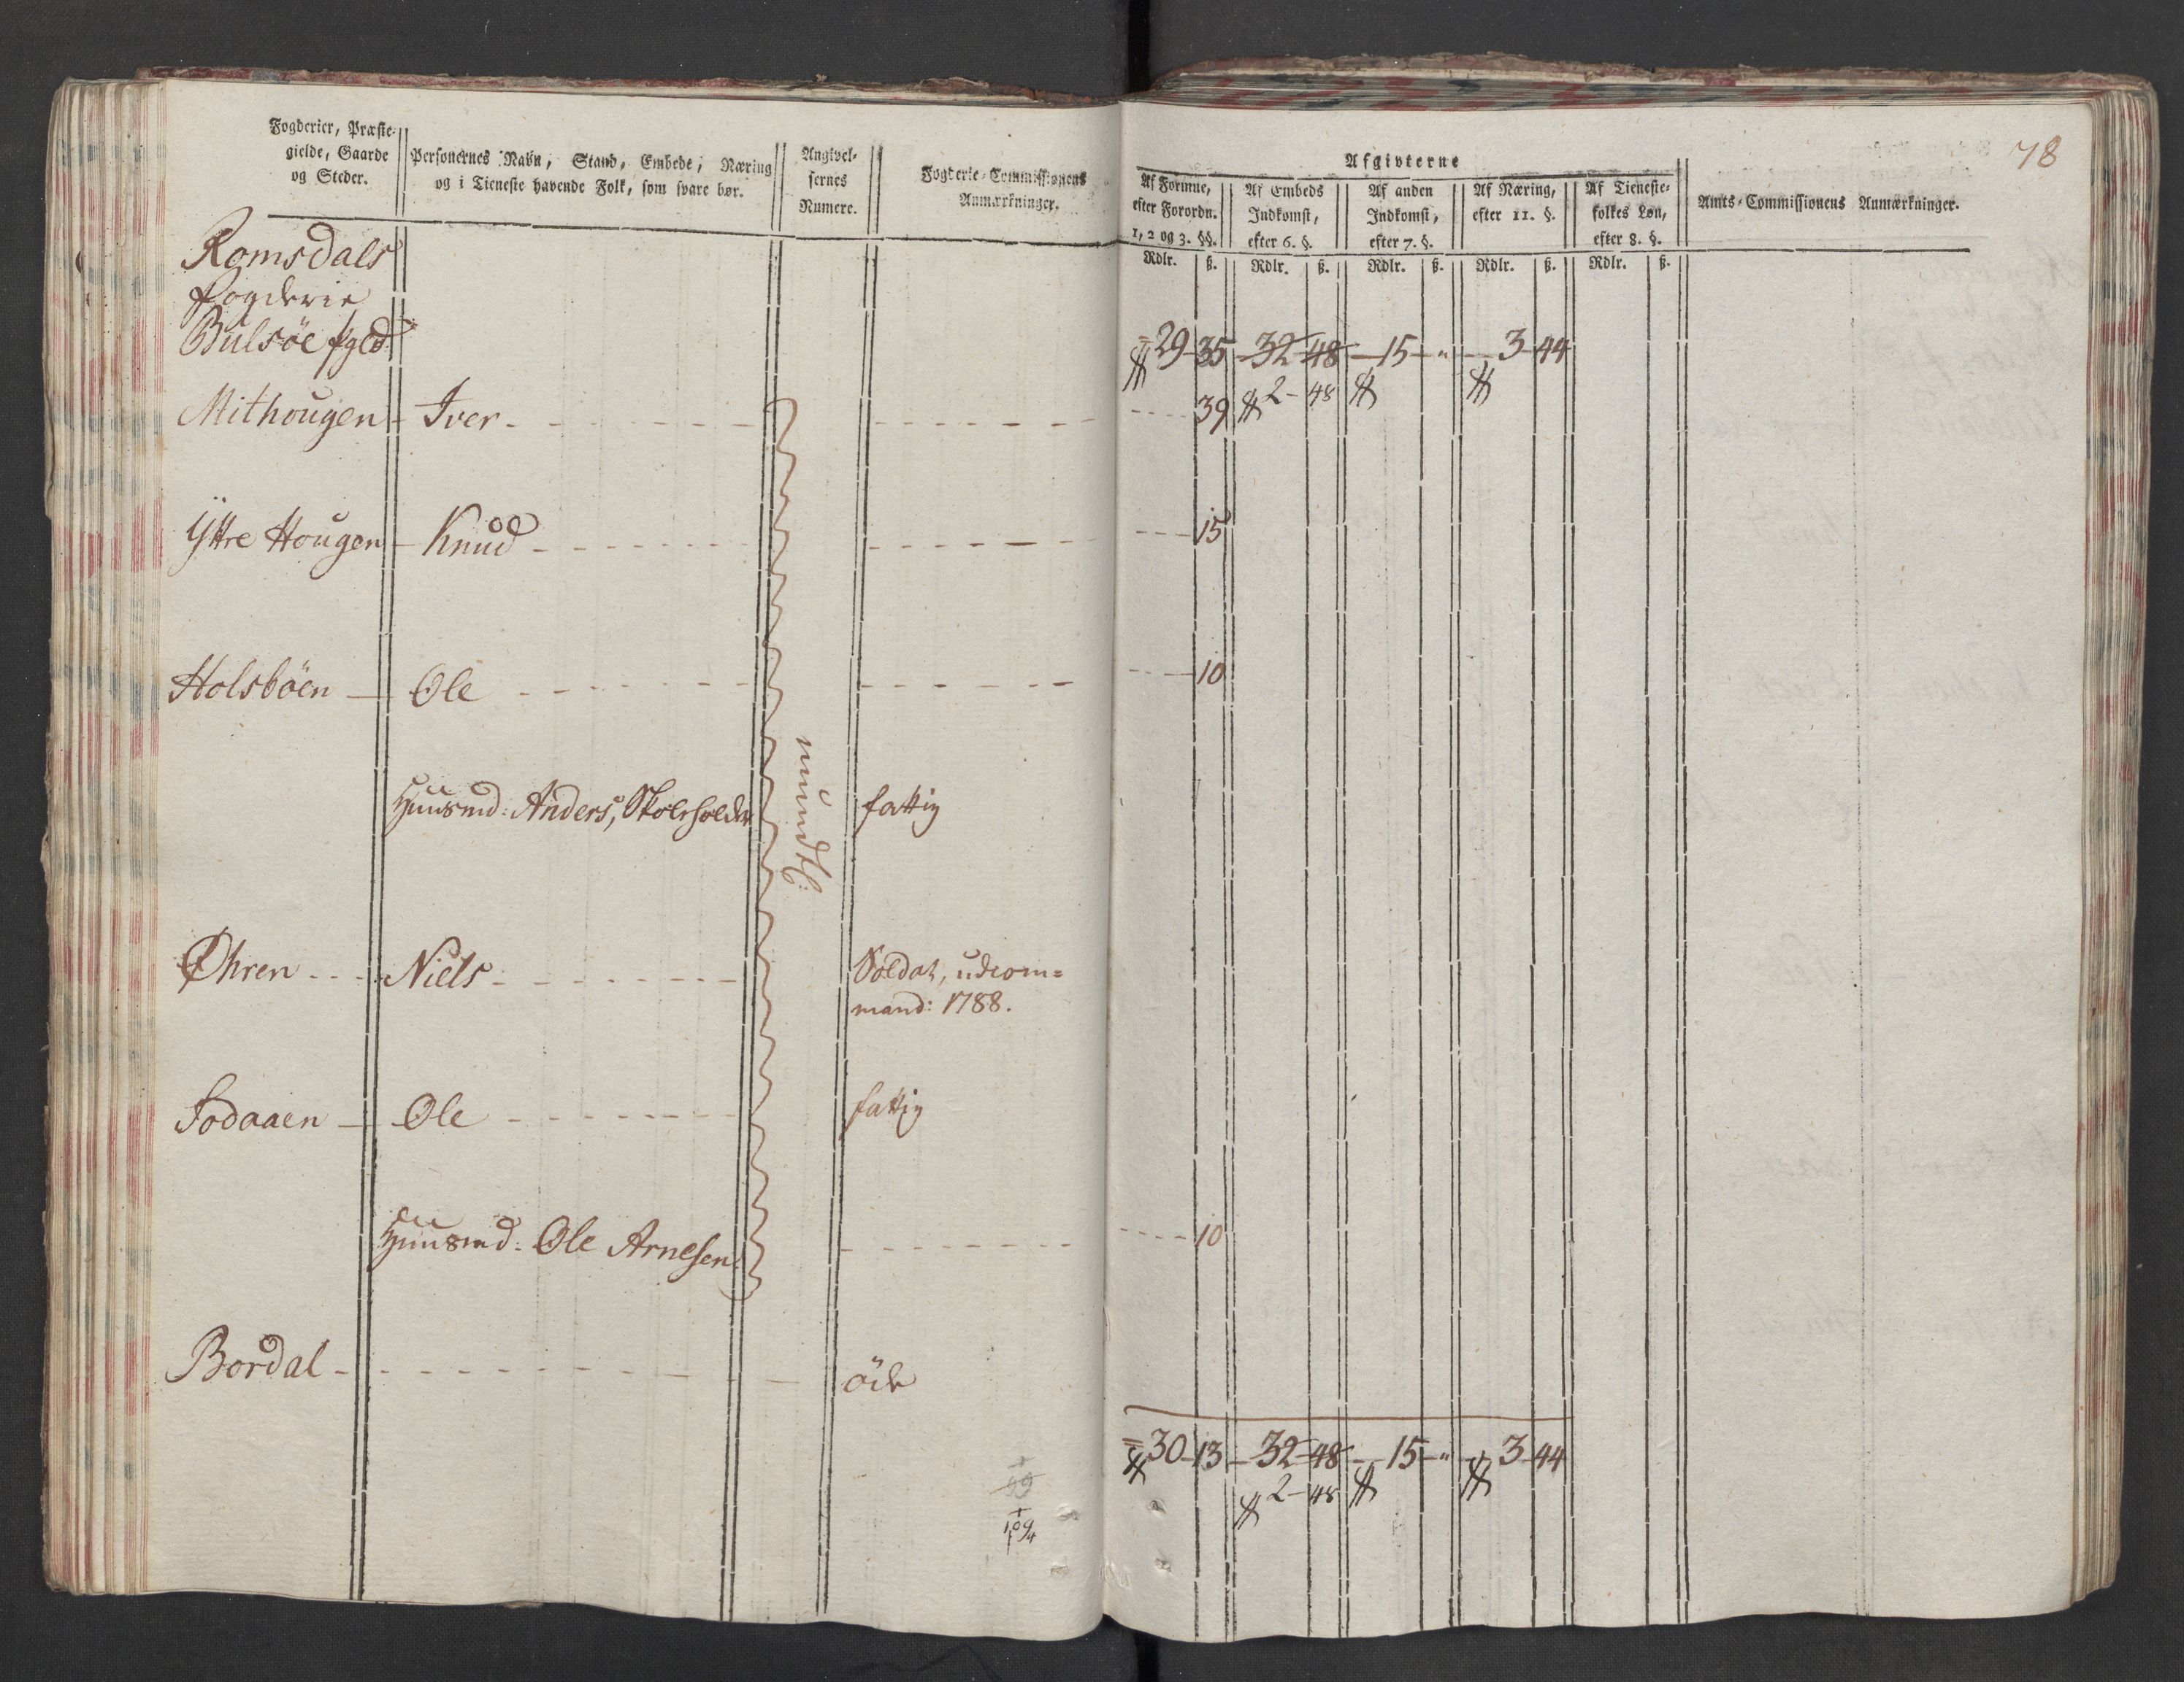 Fogderier, Præste-
gielde, Gaarde
og Steder.
Personernes Navn, Stand, Embede, Næring
og i Tieneste havende Folk, som svare bør.
Angivel-
sernes
Numere.
Fogderie-Commissionens
Anmærkninger.
Afgivterne
Af Formue,
efter Forordn.
1, 2 og 3. §§.
Af Embeds
Indkomst,
efter 6. §.
Af anden
Indkomst,
efter 7. §.
Af Næring,
efter 11. §.
Af Tieneste-
folkes Løn,
efter 8. §.
Amts-Commissionens Anmærkninger.
78
Rdlr. ß. Rdlr. ß. Rdlr. ß. Rdlr. ß. Rdlr. ß.
Romsdals
fogderie
Bulsöe pgld
29 35 32 48 15 " 3 44
2 48
Mithougen Iver 39
Yttre Hougen Knud 15
Holsböen Ole 10
Huusmd: Anders, Skoleholder fattig
mundtl:
Øhren Niels Soldat, udcom=
mand: 1788.
Sodaaen Ole fattig
Huusmd: Ole Arnesen 10
Bordal öde
30 13 32 48 15 " 3 44
2 48